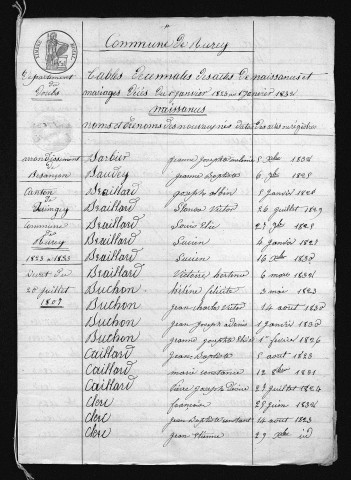 Commune de Murey
Département du Doubs
Tables décennales des actes de naissances et
mariages Décès du 1er janvier 1823 au 1er janvier 1833
naissances
noms et prénoms des nouveaux nés dates des actes ou registres
arrondissement de Besançon
Canton de Quingey
Commune de Murey
1823 a 1833
Decret du
20 juillet
1807
Barbier jeanne josephe 8 xbre 1832
Baudey jeanne Baptiste 6 1825
Braillard joseph albin 5 janvier 1826
Braillard Victor 26 juillet 1829
Braillard Louis Elie 27 9bre 1825
Braillard Lucien 4 janvier 1823
Braillard Lucien 16 xbre
Braillard Victoire hortense 6 mars 1832
Buchon hélène félicité 3 mai 1823
Buchon jean charles Victor 14 aout
Buchon jean joseph 1 janvier
Buchon jeanne josephe 1er fevrier 1826
Caillard jean Baptiste 8 aout 1823
Caillard marie constance 12 8bre 1831
Caillard joseph 27 juillet 1824
Clerc françoise 25 juin 1832
Clerc jean Baptiste constant 14 aout 1823
Clerc jean Etienne 27 xbre id